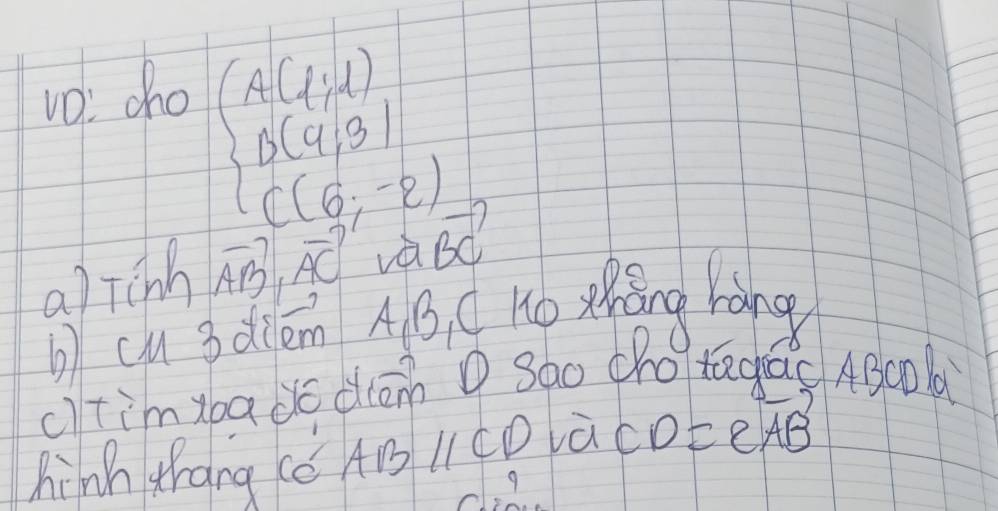 VD: cho { A(1;1)
B(9;3)
C(6;-2)
a) Tính AB→, AC→ và BC→
b) CM 3 điểm A,B,C ko thẳng hàng
c) Tìm toạ độ điểm D sao cho tứ giác ABCD là
hình thang có AB // CD và CD = 2AB→